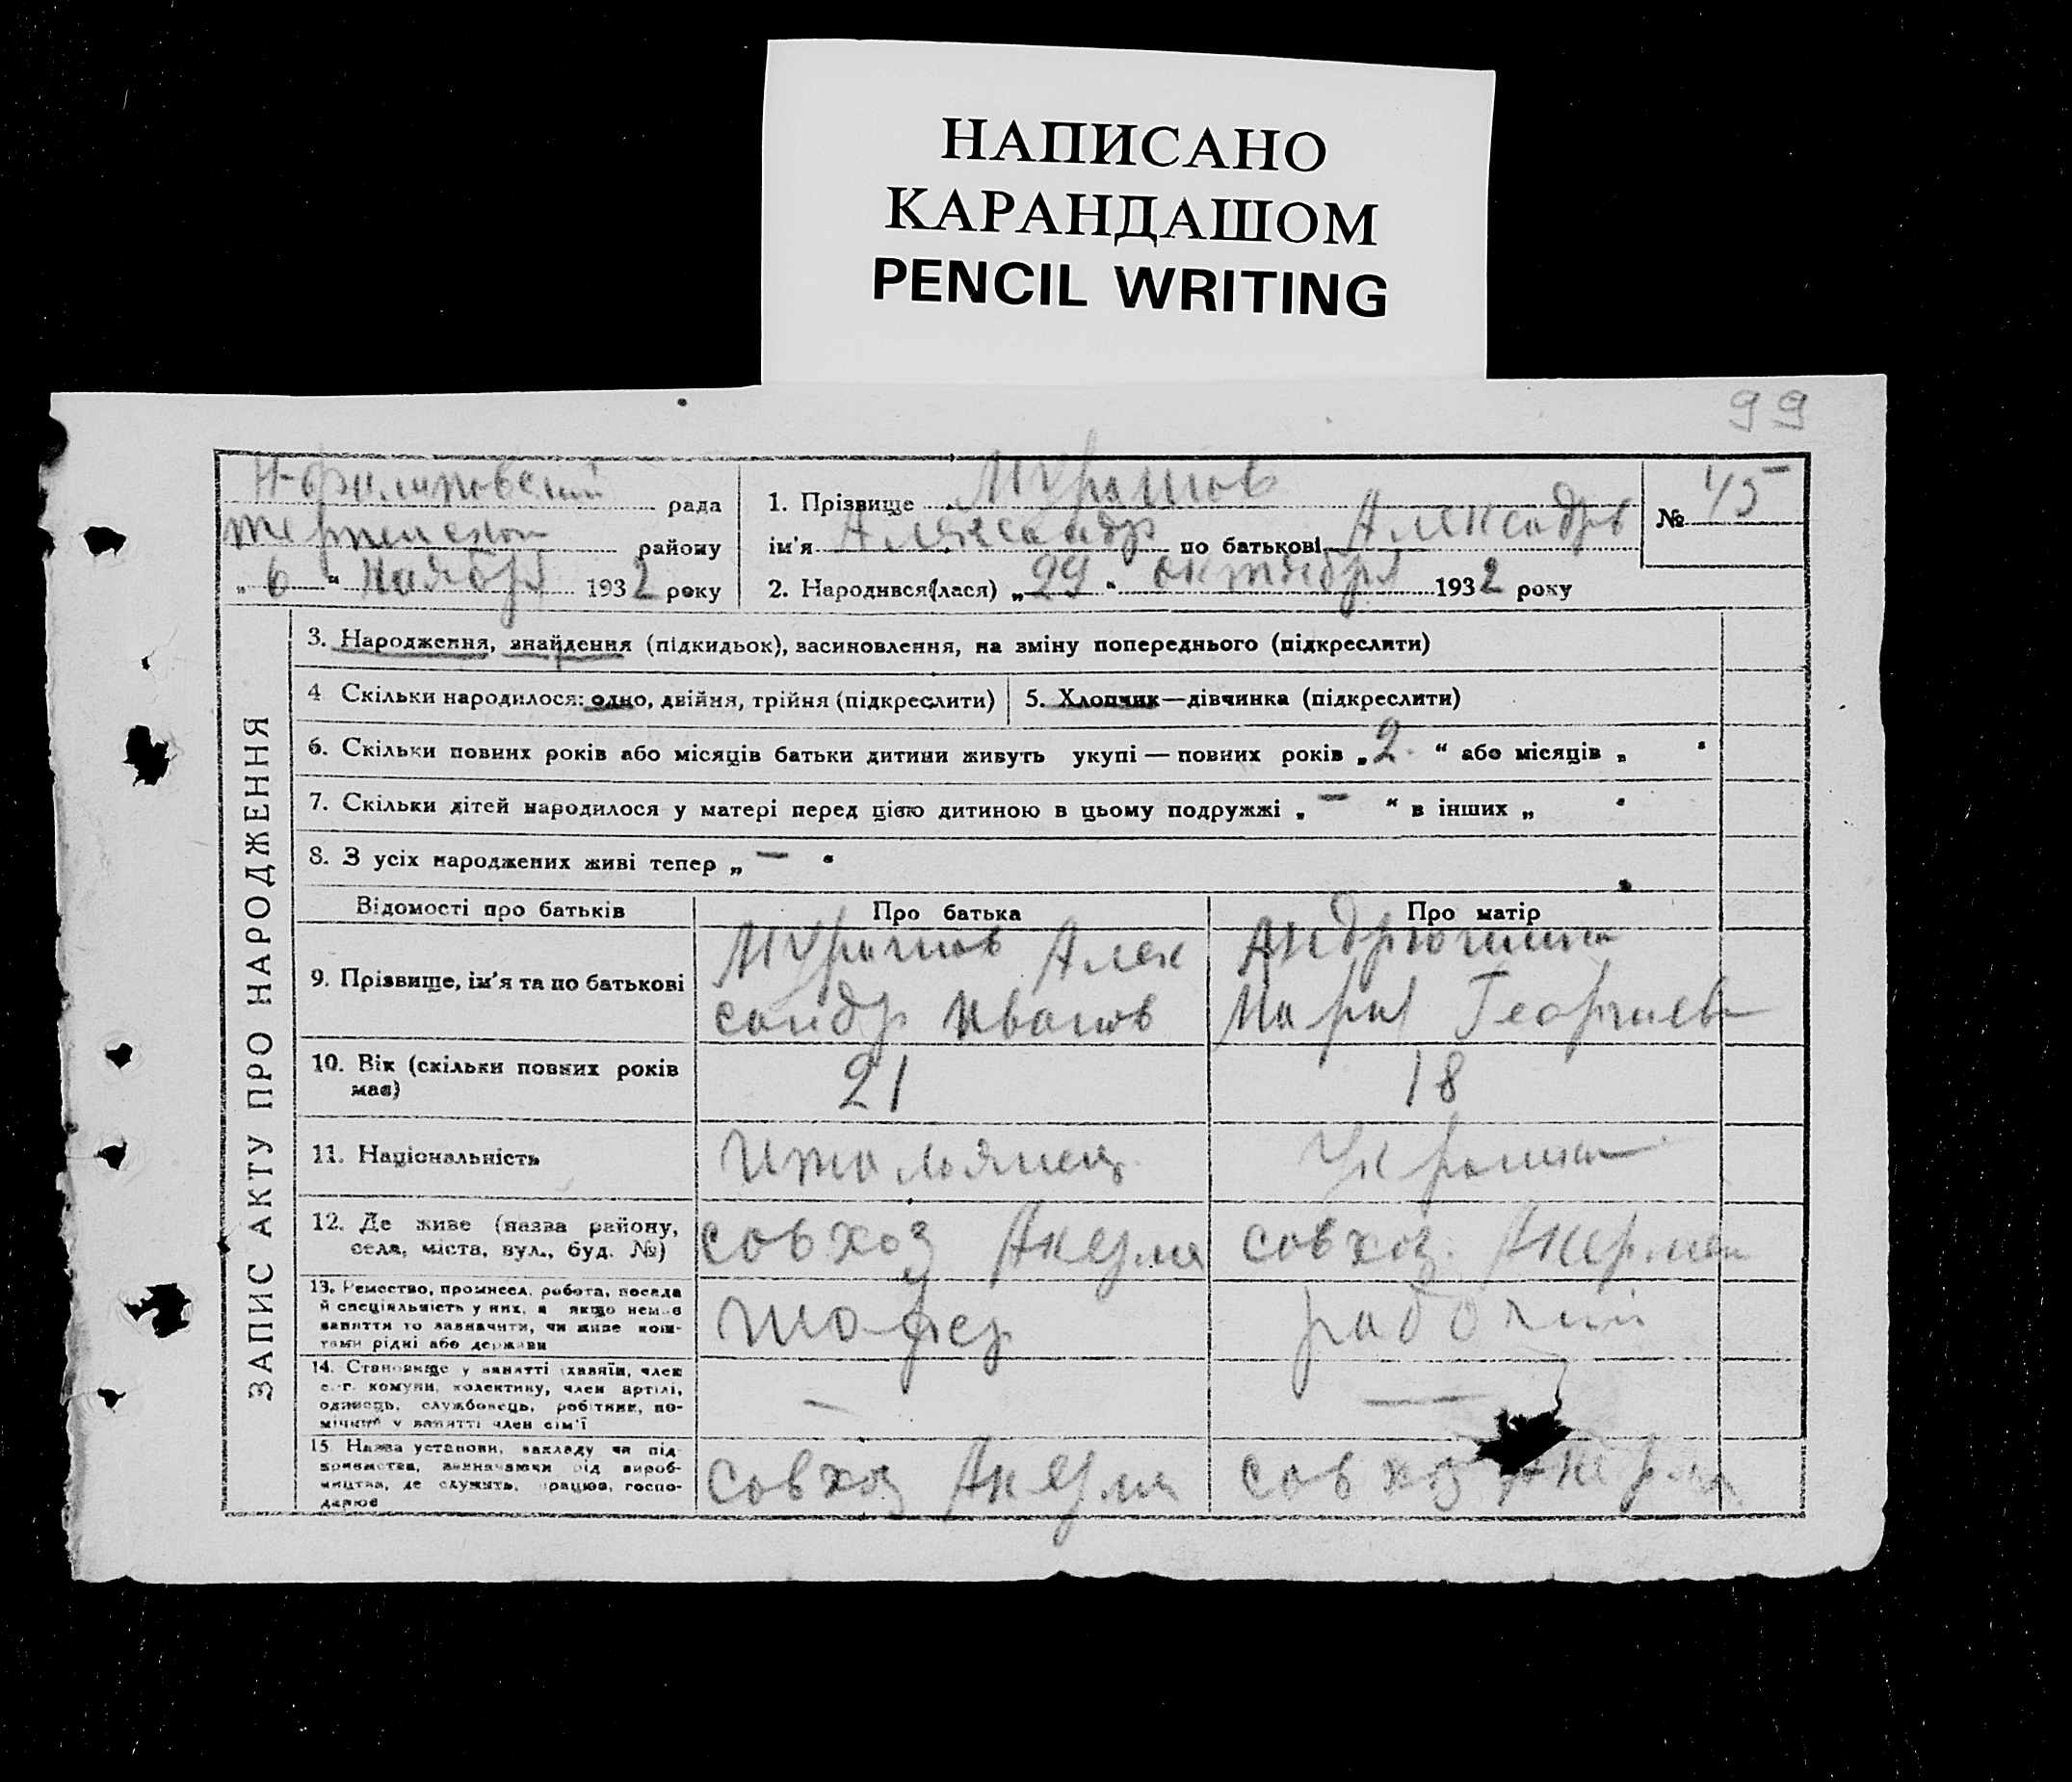 НАПИСАНО
КАРАНДАШОМ
PENCIL WRITING
99
рада
району
„ 6 “ ноября 1932 року
1. Прізвище Мурашов
ім'я Александр по батькові Александров
2. Народився(лася) „ 29 “ октября 1932 року
№ 45
ЗАПИС АКТУ ПРО НАРОДЖЕННЯ
3. Народження, знайдення (підкидьок), васиновлення, на зміну попереднього (підкреслити)
4 Скільки народилося: одно, двійня, трійня (підкреслити)
5. Хлопчик—дівчинка (підкреслити)
6. Скільки повних років або місяців батьки дитини живуть укупі — повних років „ 2 “ або місяців „ “
7. Скільки дітей народилося у матері перед цією дитиною в цьому подружжі „ — “ в інших „ “
8. З усіх народжених живі тепер „ — “
Відомості про батьків
Про батька
Про матір
9. Прізвище, ім'я та по батькові
Мурашов Алек
сандр Иванов
Мария Георгиев
10. Вік (скільки повних років
має)
21
18
11. Національність
итальянец
Украинка
12. Де живе (назва району,
села, міста, вул., буд. №)
совхоз Акерма
совхоз Акерман
13. Ремество, промисел, робота, посада
й спеціяльність у них, а якщо немає
заняття то зазначити, чи живе кош-
тами рідні або держави
шофер
рабочий
14. Становище у занятті (хазяїн, член
с.-г. комуни, колективу, член артілі,
одинець, службовець, робітник, по-
мічний у занятті член сім'ї
—
—
15. Назва установи, закладу чи під-
приємства, визначаючи рід вироб-
ництва, де служить, працює, госпо-
дарює
совхоз Акерма
совхоз Акерма